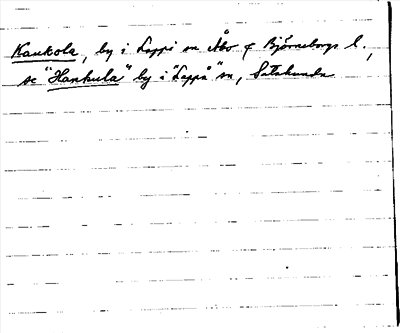 Kaukola, by i Lappi sn Åbo o Björneborgs l.,
se "Haukula" by i "Lappå" sn, Satakunda